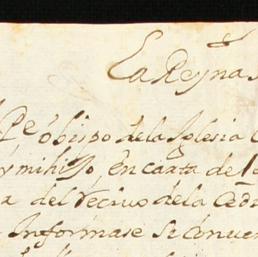 La Reyna
Pe obispo dela Iglesia
y mi hijo, en carta de
a del recivo dela Ced
Informase si conven